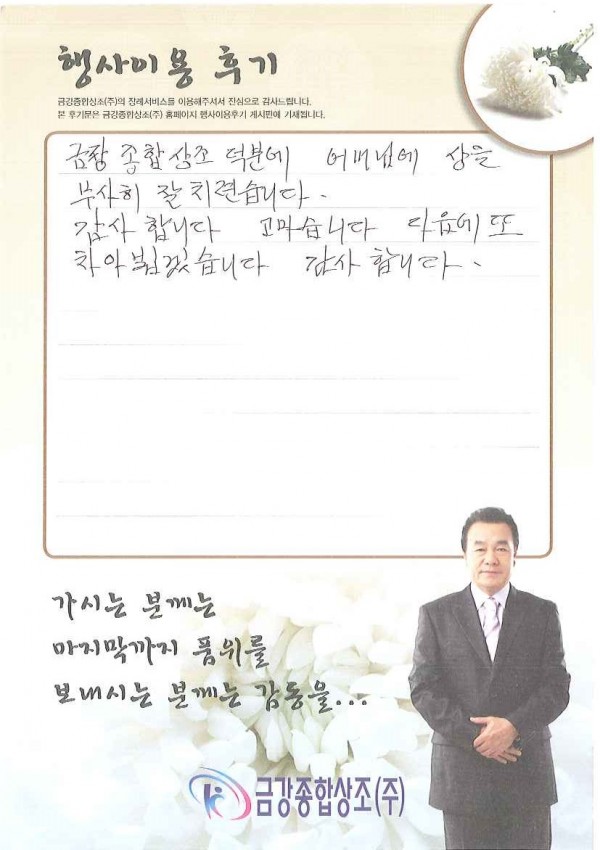 행사이용 후기
금강종합상조(주)의 장례서비스를 이용해주셔서 진심으로 감사드립니다.
본 후기문은 금강종합상조(주) 홈페이지 행사이용후기 게시판에 기재됩니다.
금강 종합상조 덕분에 어머님에 상을
무사히 잘 치련습니다.
감사 합니다 고마습니다 다음에 또
차아 뵙겠습니다 감사 합니다.
가시는 분께는
마지막까지 품위를
보내시는 분께는 감동을...
금강종합상조(주)